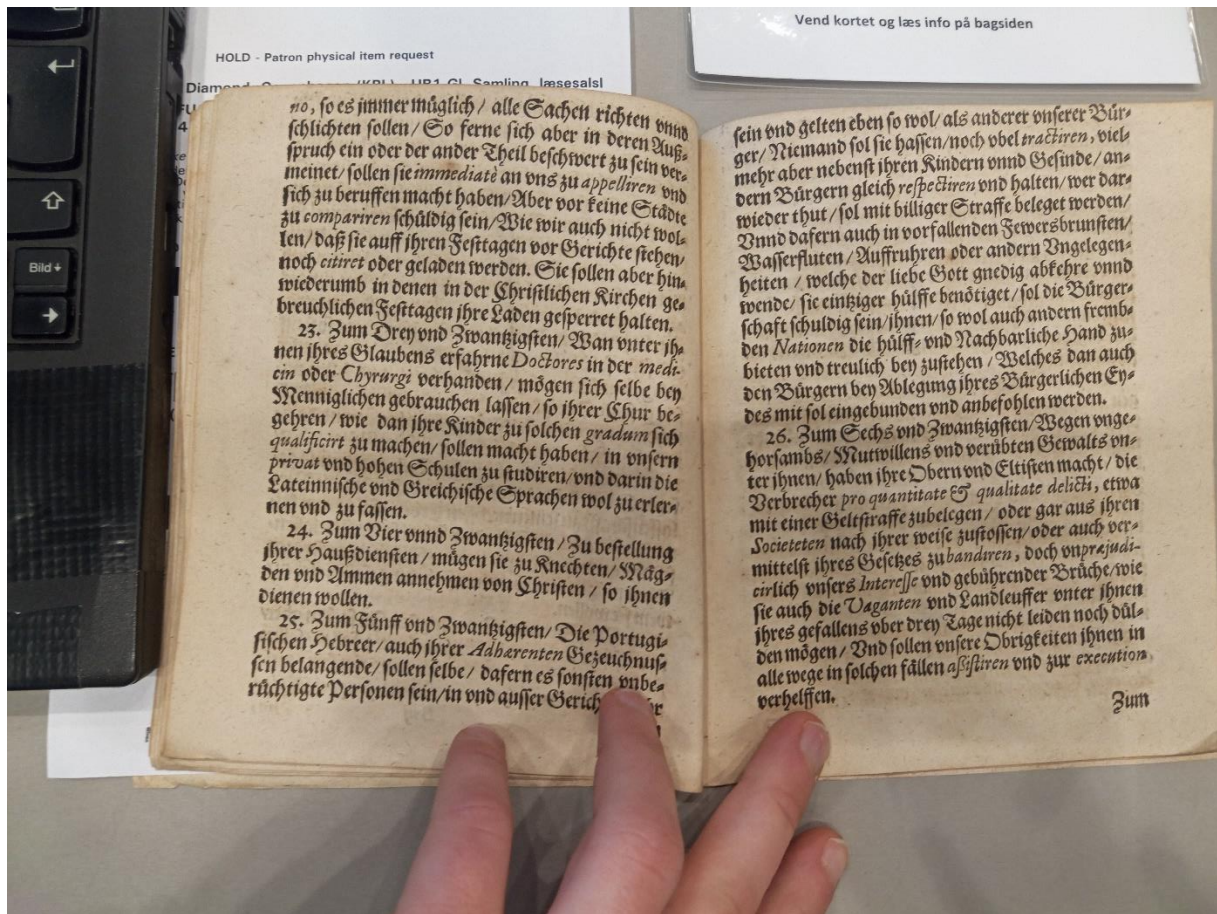 Vend kortet og læs info på bagsiden
HOLD - Patron physical item request
læsesalsl
Bild
no, ſo es jmmer müglich / alle Sachen richten vnnd
ſchlichten ſollen / So ferne ſich aber in deren Auß-
ſpruch ein oder der ander Theil beſchwert zu ſein ver-
meinet / ſollen ſie immediatè an vns zu appelliren vnd
ſich zu beruffen macht haben / Aber vor keine Städte
zu compariren ſchüldig ſein / Wie wir auch nicht wol-
len / daß ſie auff jhren Feſttagen vor Gerichte ſtehen /
noch citiret oder geladen werden. Sie ſollen aber hin-
wiederumb in denen in der Chriſtlichen Kirchen ge-
breuchlichen Feſttagen jhre Laden geſperret halten.
23. Zum Drey vnd Zwantzigſten / Wan vnter jh-
nen jhres Glaubens erfahrne Doctores in der medi-
cin oder Chyrurgi verhanden / mögen ſich ſelbe bey
Menniglichen gebrauchen laſſen / ſo jhrer Chur be-
gehren / wie dan jhre Kinder zu ſolchen gradum ſich
qualificirt zu machen / ſollen macht haben / in vnſern
privat vnd hohen Schulen zu ſtudiren / vnd darin die
Lateinniſche vnd Greichiſche Sprachen wol zu erler-
nen vnd zu faſſen.
24. Zum Vier vnnd Zwantzigſten / Zu beſtellung
jhrer Haußdienſten / mügen ſie zu Knechten / Mäg-
den vnd Ammen annehmen von Chriſten / ſo jhnen
dienen wollen.
25. Zum Fünff vnd Zwantzigſten / Die Portugi-
ſiſchen Hebreer / auch jhrer Adhærenten Gezeuchnuſ-
ſen belangende / ſollen ſelbe / dafern es ſonſten vnbe-
rüchtigte Perſonen ſein / in vnd auſſer
ſein vnd gelten eben ſo wol / als anderer vnſerer Bür-
ger / Niemand ſol ſie haſſen / noch vbel tractiren, viel-
mehr aber nebenſt jhren Kindern vnnd Geſinde / an-
dern Bürgern gleich reſpectiren vnd halten / wer dar-
wieder thut / ſol mit billiger Straffe beleget werden /
Vnnd dafern auch in vorfallenden Fewersbrunſten /
Waſſerfluten / Auffruhren oder andern Vngelegen-
heiten / welche der liebe Gott gnedig abkehre vnnd
wende / ſie eintziger hülffe benötiget / ſol die Bürger-
ſchaft ſchuldig ſein / jhnen / ſo wol auch andern fremb-
den Nationen die hülff- vnd Nachbarliche Hand zu-
bieten vnd treulich bey zuſtehen / Welches dan auch
den Bürgern bey Ablegung jhres Bürgerlichen Ey-
des mit ſol eingebunden vnd anbefohlen werden.
26. Zum Sechs vnd Zwantzigſten / Wegen vnge-
horſambs / Mutwillens vnd verübten Gewalts vn-
ter jhnen / haben jhre Obern vnd Eltiſten macht / die
Verbrecher pro quantitate & qualitate delicti, etwa
mit einer Geltſtraffe zubelegen / oder gar aus jhren
Societeten nach jhrer weiſe zuſtoſſen / oder auch ver-
mittelſt jhres Geſetzes zu bandiren, doch vnpræjudi-
cirlich vnſers Intereſſe vnd gebührender Brüche / wie
ſie auch die Vaganten vnd Landleuffer vnter jhnen
jhres gefallens vber drey Tage nicht leiden noch dül-
den mögen / Vnd ſollen vnſere Obrigkeiten jhnen in
alle wege in ſolchen fällen aſſiſtiren vnd zur execution
verhelffen.
Zum